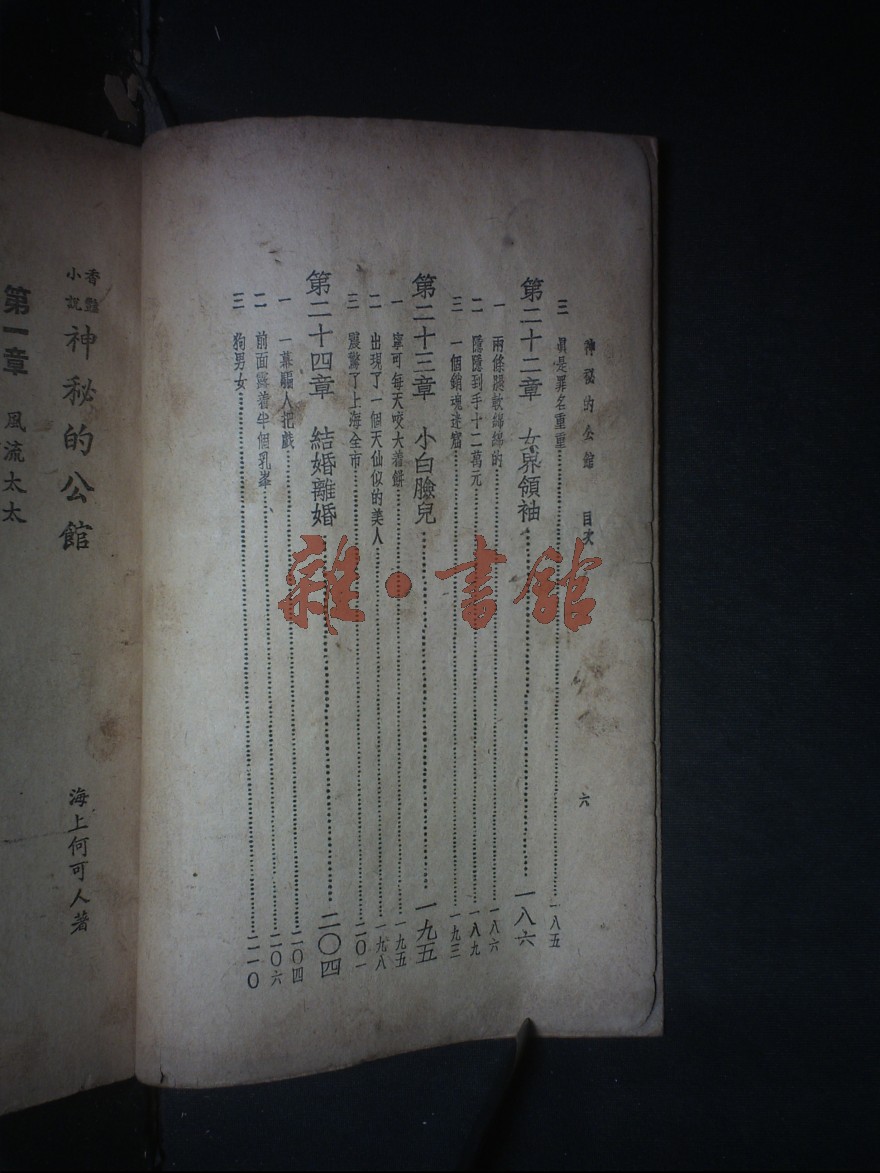 神秘的公館　目次　六
三　眞是罪名重重…一八五
第二十二章　女界領袖…一八六
一　兩條腿軟綿綿的…一八六
二　隱隱到手十二萬元…一八九
三　一個銷魂迷窟…一九三
第二十三章　小白臉兒…一九五
一　寧可每天咬大着餅…一九五
二　出現了一個天仙似的美人…一九八
三　震驚了上海全市…二〇一
第二十四章　結婚離婚…二〇四
一　一幕騙人把戲…二〇四
二　前面露着半個乳峯…二〇六
三　狗男女…二一〇
香艷小說　神秘的公館　海上何可人著
第一章　風流太太
雜·書館